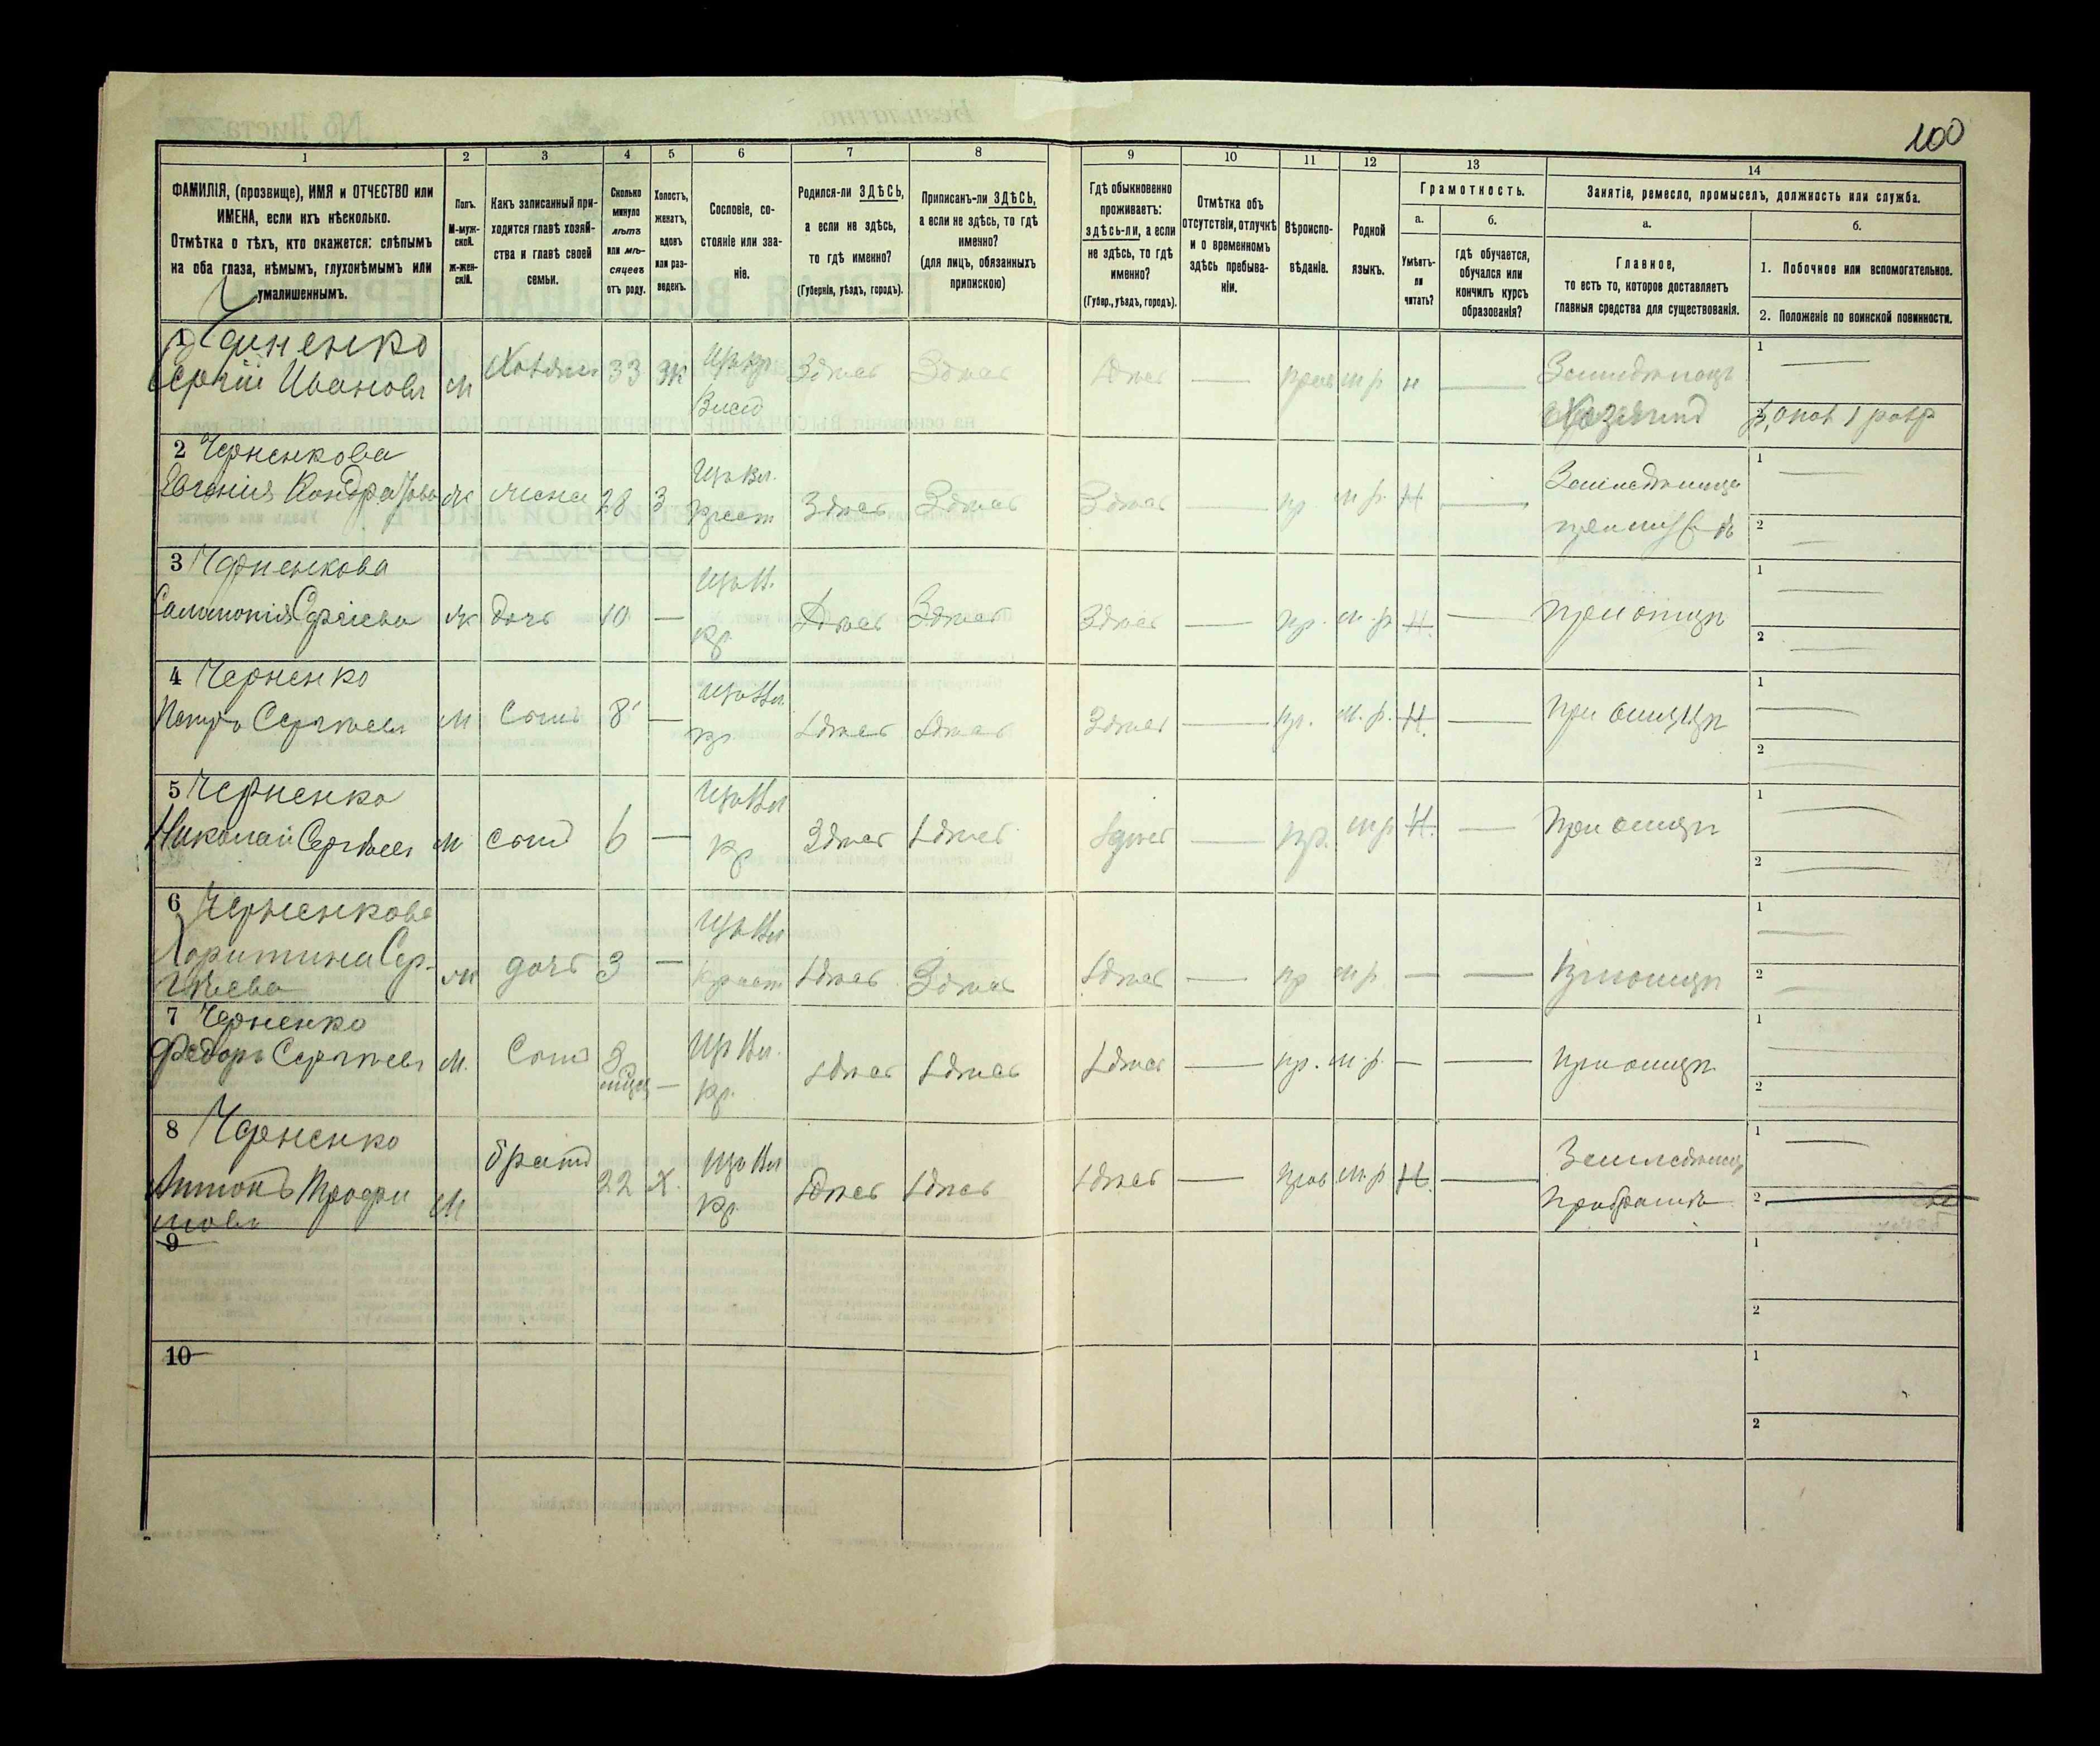 100
1 2 3 4 5 6 7 8 9 10 11 12 13 14
ФАМИЛІЯ, (прозвище), ИМЯ и ОТЧЕСТВО или
ИМЕНА, если ихъ нѣсколько.
Отмѣтка о тѣхъ, кто окажется: слѣпымъ
на оба глаза, нѣмымъ, глухонѣмымъ или
умалишеннымъ.
Полъ.
М-муж-
ской.
ж-жен-
скій.
Какъ записанный при-
ходится главѣ хозяй-
ства и главѣ своей
семьи.
Сколько
минуло
лѣтъ
или мѣ-
сяцевъ
отъ роду.
Холостъ,
женатъ,
вдовъ
или раз-
веденъ.
Сословіе, со-
стояніе или зва-
ніе.
Родился-ли ЗДѢСЬ,
а если не здѣсь,
то гдѣ именно?
(Губернія, уѣздъ, городъ).
Приписанъ-ли ЗДѢСЬ,
а если не здѣсь, то гдѣ
именно?
(для лицъ, обязанныхъ
припискою)
Гдѣ обыкновенно
проживаетъ:
здѣсь-ли, а если
не здѣсь, то гдѣ
именно?
(Губер., уѣздъ, городъ).
Отмѣтка объ
отсутствіи, отлучкѣ
и о временномъ
здѣсь пребыва-
ніи.
Вѣроиспо-
вѣданіе.
Родной
языкъ.
Грамотность.
а.
Умѣетъ-
ли
читать?
б.
гдѣ обучается,
обучался или
кончилъ курсъ
образованія?
Занятіе, ремесло, промыселъ, должность или служба.
а.
Главное,
то есть то, которое доставляетъ
главныя средства для существованія.
б.
1. Побочное или вспомогательное.
2. Положеніе по воинской повинности.
1 Черненко
Сергѣй Ивановъ м Хозяинъ 33 Ж Здѣсь Здѣсь Здѣсь — прав м р н —
Хозяинъ
1 —
2
2 Черненкова
Евгенія Кондратова ж жена 28 З крест Здѣсь Здѣсь Здѣсь — пр м р. Н —
1 —
2 —
3 Черненкова
Саломонія Сергіева ж дочь 10 — кр. Здѣсь Здѣсь Здѣсь — пр. м. р. Н. — при отцѣ
1 —
2 —
4 Черненко
Петръ Сергѣевъ м Сынъ 8 — кр. Здѣсь Здѣсь Здѣсь — пр. м. р. Н. — при отцѣ
1 —
2 —
5 Черненко
Николай Сергѣевъ м сынъ 6 — кр. Здѣсь Здѣсь Здѣсь — пр. м р Н. — при отцѣ
1 —
2 —
6 Черненкова
Харитина Сер-
гѣева ж дочь 3 — крест Здѣсь Здѣсь Здѣсь — пр м р — — при отцѣ
1 —
2 —
7 Черненко
Федоръ Сергѣевъ м. Сынъ 3 — кр. Здѣсь Здѣсь Здѣсь — пр. м. р. — — при отцѣ
1
2
8 Черненко
Антонъ Трофи
мовъ м братъ 22 Х. кр. Здѣсь Здѣсь Здѣсь — прав м р Н. —
при братѣ
1 —
2
9
1
2
10
1
2